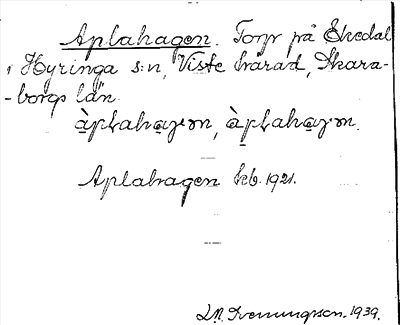 Aplahagen. Torp på Ekedal
i Hyringa s:n, Viste härad, Skara-
-borgs län.
àpḷahaγən, àpḷahaγən.
Aplahagen kb. 1921.
1939.